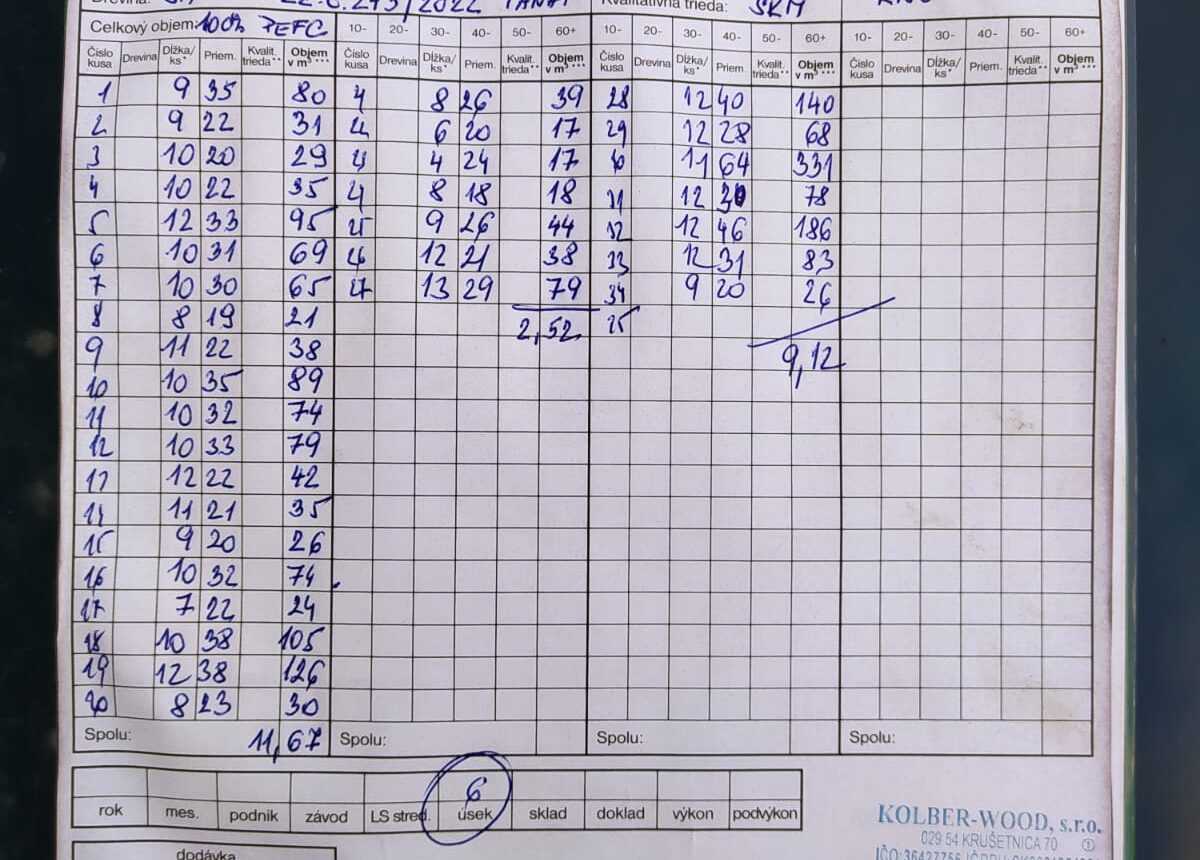 22.6.243/2022 TANAP Kvalitatívna trieda: SKM
Celkový objem: 100% PEFC 10- 20- 30- 40- 50- 60+ 10- 20- 30- 40- 50- 60+ 10- 20- 30- 40- 50- 60+
Číslo kusa Drevina Dĺžka/ks* Priem. Kvalit. trieda** Objem v m³*** Číslo kusa Drevina Dĺžka/ks* Priem. Kvalit. trieda** Objem v m³*** Číslo kusa Drevina Dĺžka/ks* Priem. Kvalit. trieda** Objem v m³*** Číslo kusa Drevina Dĺžka/ks* Priem. Kvalit. trieda** Objem v m³***
1 9 35 80 8 26 39 28 12 40 140
2 9 22 31 6 20 17 29 12 28 68
3 10 20 29 4 24 17 11 64 331
4 10 22 35 8 18 18 31 12 30 78
5 12 33 95 25 9 26 44 32 12 46 186
6 10 31 69 26 12 21 38 33 12 31 83
7 10 30 65 27 13 29 79 34 9 20 26
8 8 19 21 2,52
9 11 22 38 9,12
10 10 35 89
11 10 32 74
12 10 33 79
13 12 22 42
14 11 21 35
15 9 20 26
16 10 32 74
17 7 22 24
18 10 38 105
19 12 38 126
20 8 23 30
Spolu: 11,67 Spolu: Spolu: Spolu:
6
rok mes. podnik závod LS stred. úsek sklad doklad výkon podvýkon
KOLBER-WOOD, s.r.o.
029 54 KRUŠETNICA 70
dodávka
IČO:36427756